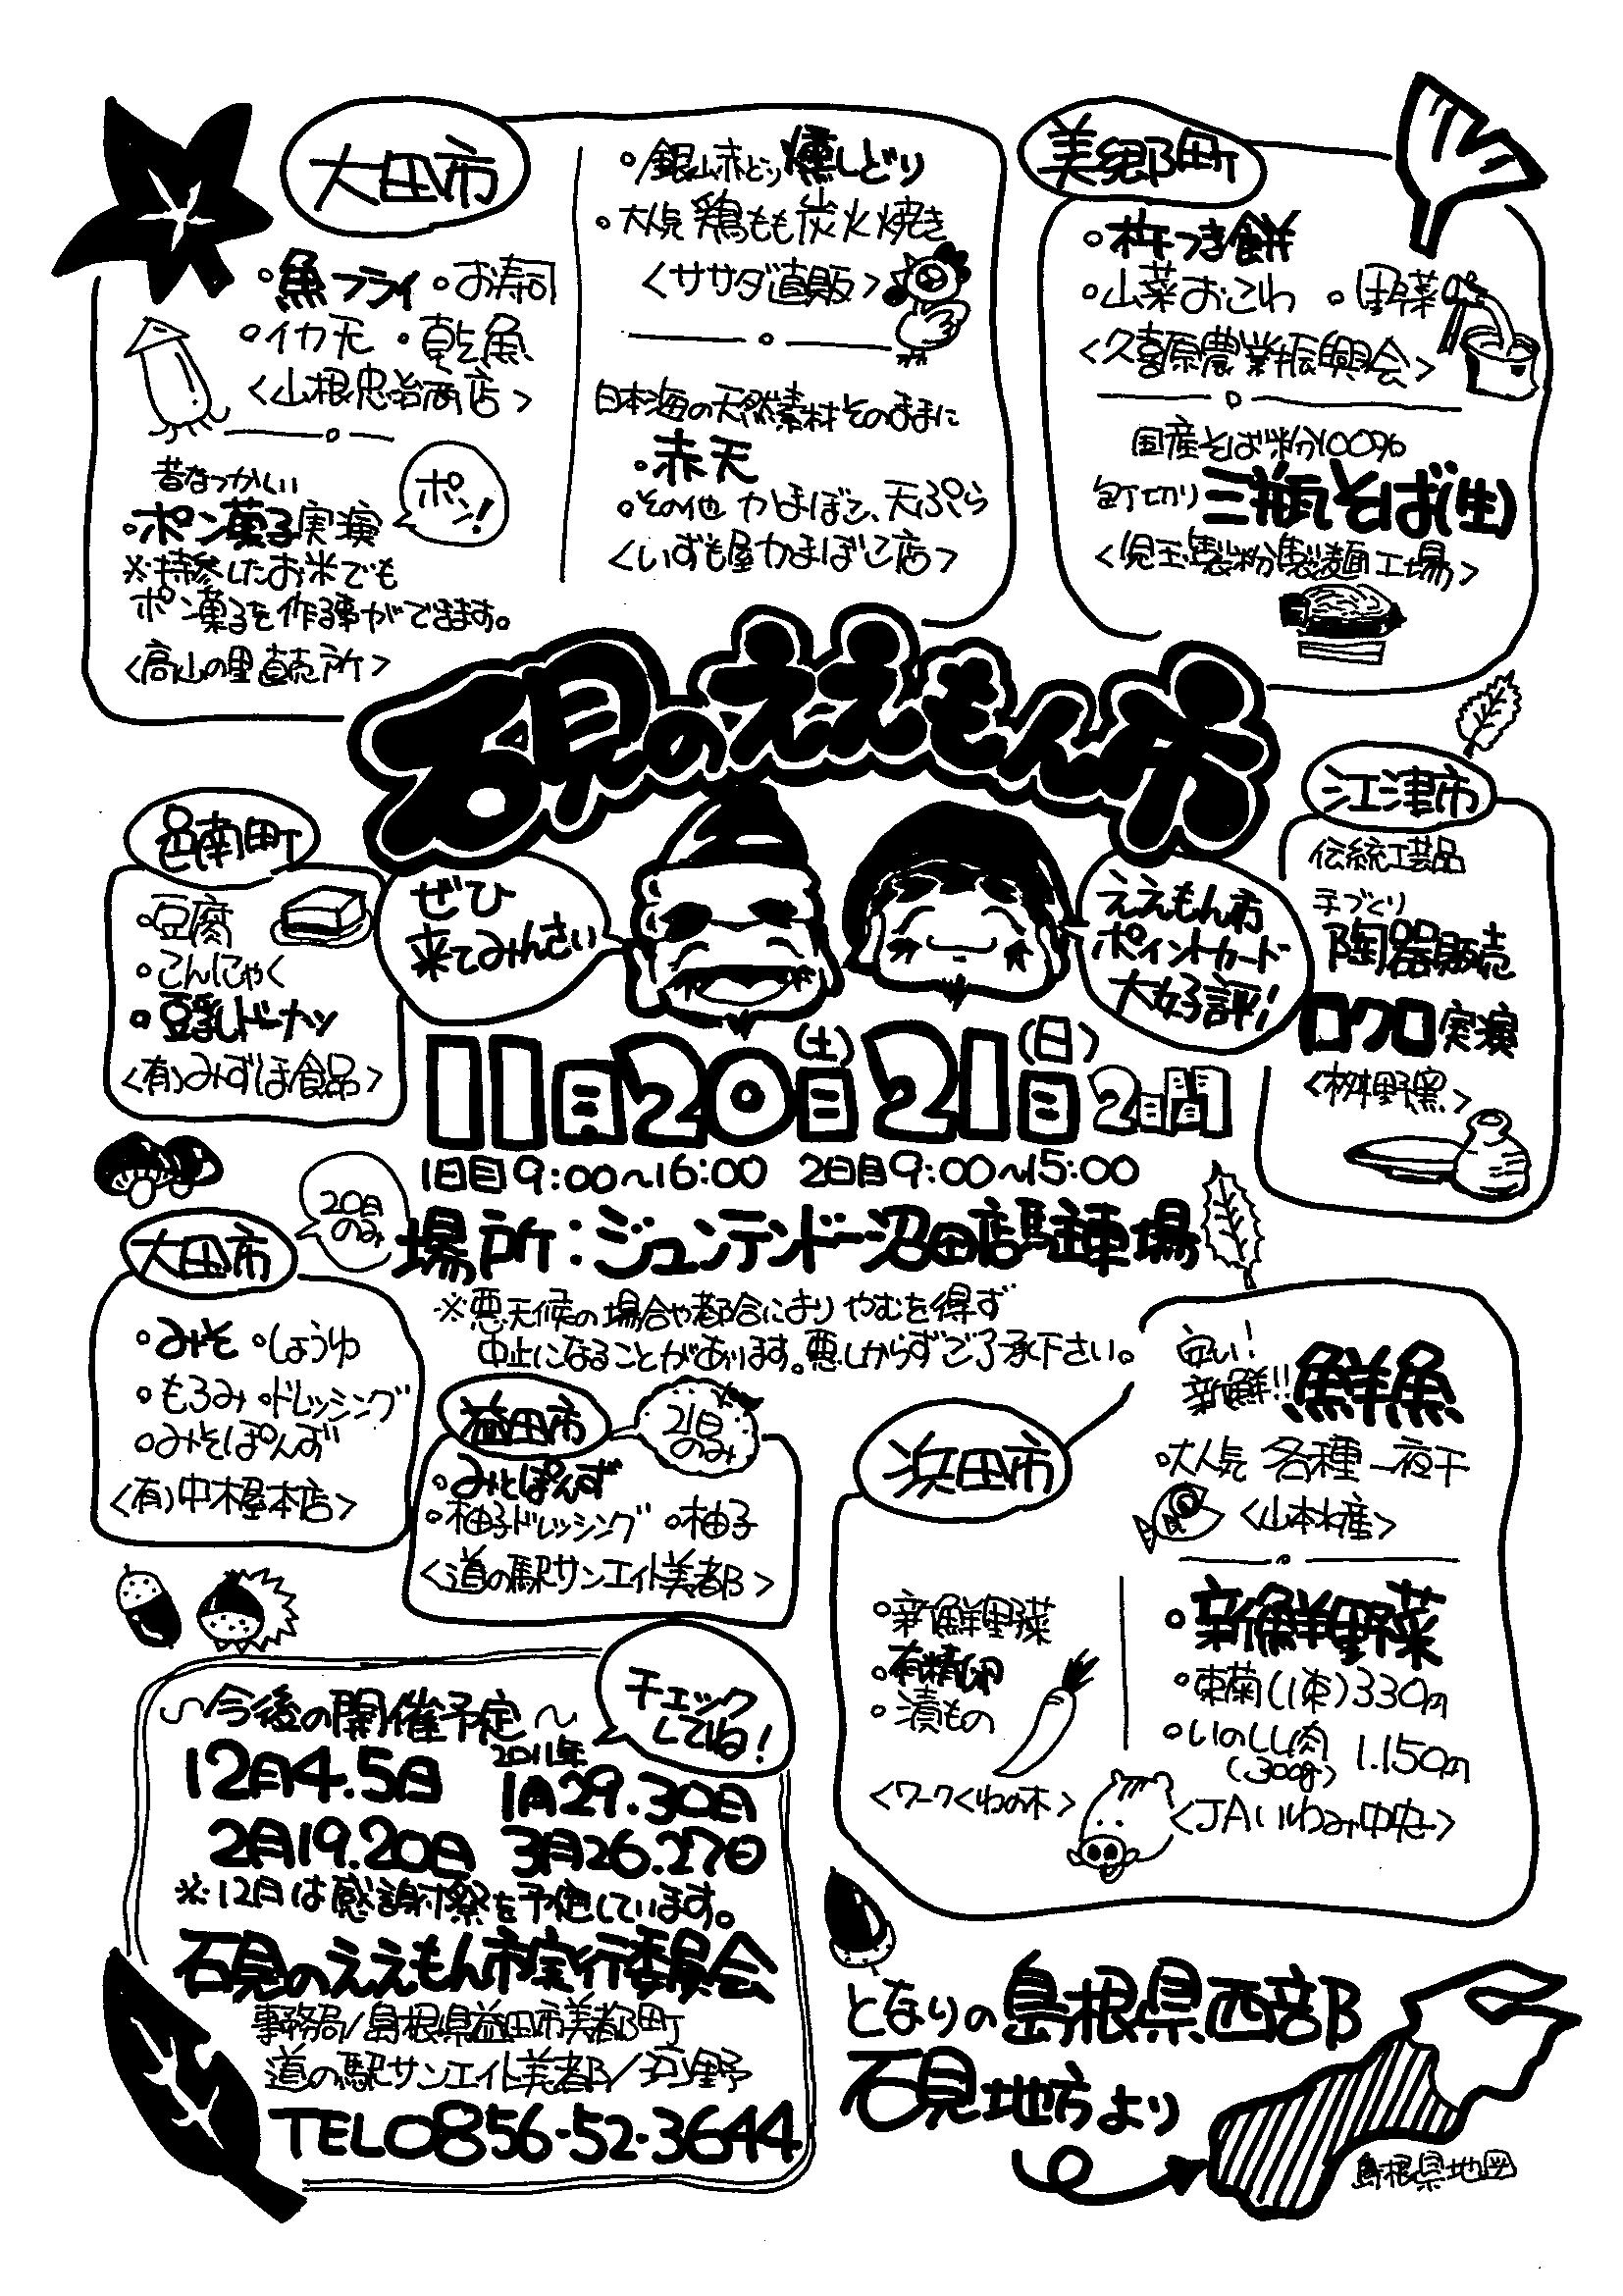 大田市
・魚フライ ・お寿司
・イカ天 ・乾魚
<山根忠治商店>
昔なつかしい
・ポン菓子実演
ポン!
※持参したお米でも
ポン菓子を作る事ができます。
<高山の里直売所>
・銀山赤どり燻しどり
・大人気 鶏もも炭火焼き
<ササダ直販>
日本海の天然素材そのままに
・赤天
・その他 かまぼこ、天ぷら
<いずも屋かまぼこ店>
美郷町
・杵つき餅
・山菜おこわ ・野菜
<久喜原農業振興会>
国産そば粉100%
包丁切り 三瓶そば(生)
<児玉製粉製麺工場>
石見のええもん市
邑南町
・豆腐
・こんにゃく
・豆乳ドーナツ
<(有)みずほ食品>
ぜひ
来てみんさい
ええもん市
ポイントカード
大好評!
江津市
伝統工芸品
手づくり
陶器販売
ロクロ実演
11月20日(土)21日(日)2日間
1日目9:00~16:00 2日目9:00~15:00
場所:ジュンテンドー沼田店駐車場
※悪天候の場合や都合によりやむを得ず
中止になることがあります。悪しからずご了承下さい。
大田市
20日
のみ
・みそ ・しょうゆ
・もろみ ・ドレッシング
・みそぽんず
<(有)中木屋本店>
益田市
21日
のみ
・みとぽんず
・柚子ドレッシング ・柚子
<道の駅サンエイト美都>
浜田市
安い!
新鮮!!鮮魚
・大人気 各種一夜干
<山本水産>
・新鮮野菜
・有精卵
・漬もの
<ワークくわの木>
・新鮮野菜
・束菊(1束)330円
・いのしし肉 1.150円
(300g)
<JAいわみ中央>
~今後の開催予定~
チェック
してね!
12月4.5日
2011年
1月29.30日
2月19.20日 3月26.27日
※12月は感謝祭を予定しています。
石見のええもん市実行委員会
事務局/島根県益田市美都町
道の駅サンエイト美都/河野
TEL0856-52-3644
となりの島根県西部
石見地方より
島根県地図